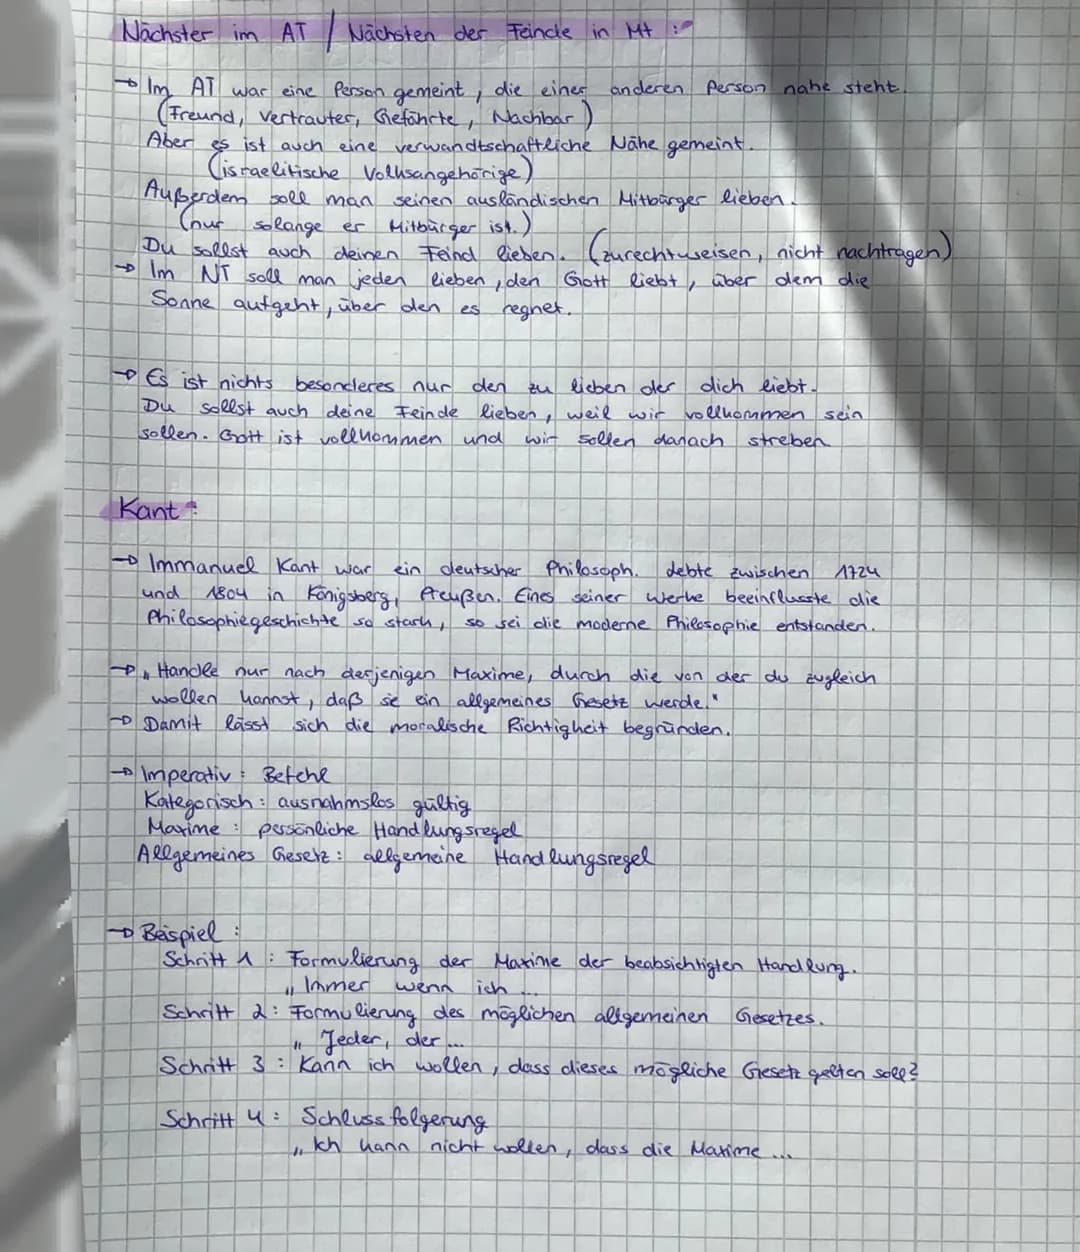 Nächster im AT / Nächsten der Feinde in Mt :
→ Im AT war eine Person gemeint, die einer anderen Person nahe steht.
(Freund, Vertrauter, Gefährte, Nachbar)
Aber es ist auch eine verwandtschaftliche Nähe gemeint.
(israelitische Volksangehörige)
Außerdem soll man seinen ausländischen Mitbürger lieben.
(nur solange er Mitbürger ist.)
Du sollst auch deinen Feind lieben. (zurechtweisen, nicht nachtragen)
→ Im NT soll man jeden lieben, den Gott liebt, über dem die
Sonne aufgeht, über den es regnet.
→ Es ist nichts besonderes nur den zu lieben der dich liebt.
Du sollst auch deine Feinde lieben, weil wir vollkommen sein
sollen. Gott ist vollkommen und wir sollen danach streben
Kant :
→ Immanuel Kant war ein deutscher Philosoph. debte zwischen 1724
und 1804 in Königsberg, Preußen. Eines seiner Werke beeinflusste die
Philosophiegeschichte so stark, so sei die moderne Philosophie entstanden.
→ „Handle nur nach derjenigen Maxime, durch die von der du zugleich
wollen kannst, daß sie ein allgemeines Gesetz werde."
→ Damit lässt sich die moralische Richtigkeit begründen.
→ Imperativ : Befehl
Kategorisch : ausnahmslos gültig
Maxime : persönliche Handlungsregel
Allgemeines Gesetz : allgemeine Handlungsregel
→ Beispiel :
Schritt 1 : Formulierung der Maxime der beabsichtigten Handlung.
„Immer wenn ich ...
Schritt 2 : Formulierung des möglichen allgemeinen Gesetzes.
„Jeder, der ...
Schritt 3 : Kann ich wollen, dass dieses mögliche Gesetz gelten soll?
Schritt 4 : Schlussfolgerung
„Ich kann nicht wollen, dass die Maxime ...